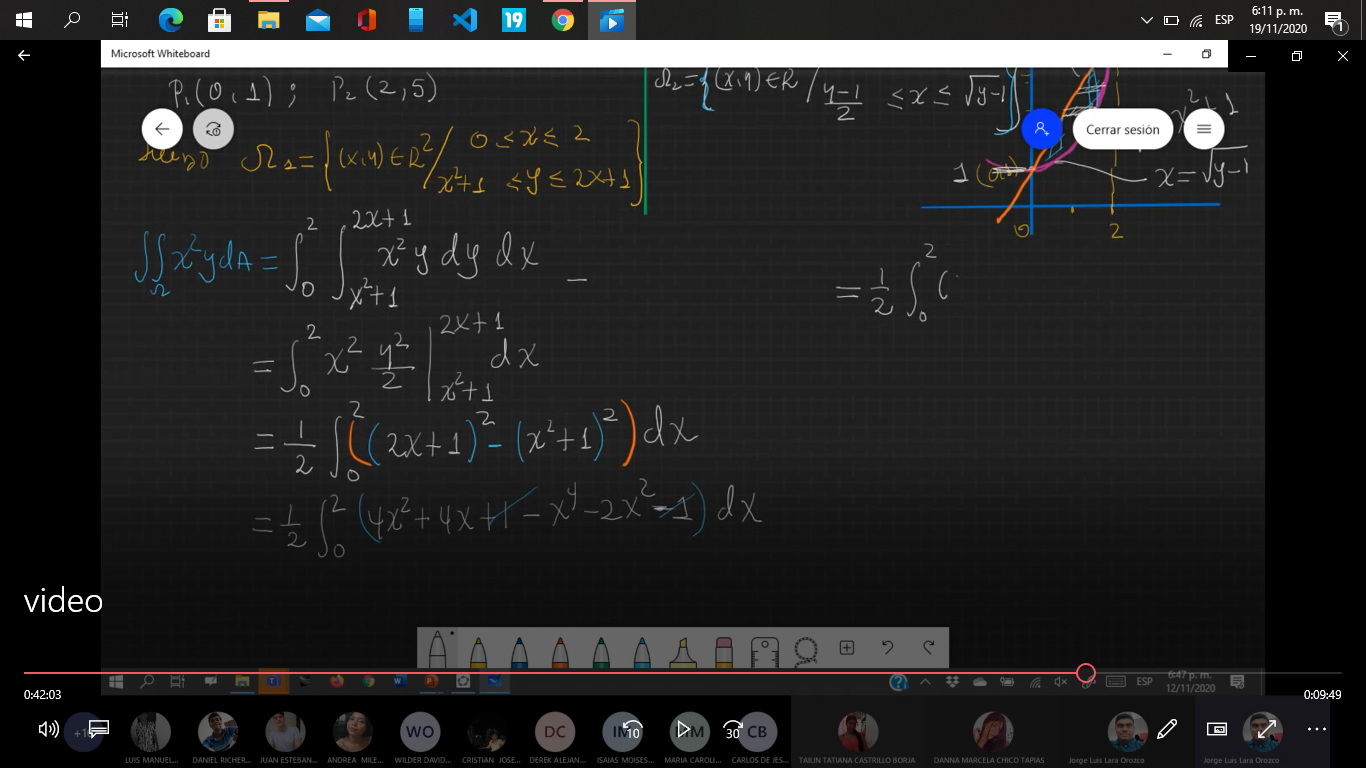 6:11 p. m.
ESP
19/11/2020
19
1
Microsoft Whiteboard
P₁(0,1) ; P₂(2,5)
Ω₂={(x,y)∈R/ (y-1)/2 ≤x≤ √y-1}
Cerrar sesión
Ω₁={(x,y)∈R²/ 0≤x≤2
x²+1 ≤y≤ 2x+1}
1
x=√y-1
0
2
∬_Ω x²ydA = ∫₀² ∫_{x²+1}^{2x+1} x²y dy dx _
= 1/2 ∫₀² (
= ∫₀² x² y²/2 |_{x²+1}^{2x+1} dx
= 1/2 ∫₀² ((2x+1)² - (x²+1)²) dx
= 1/2 ∫₀² (4x²+4x+1-x⁴-2x²-1) dx
video
ESP
6:47 p. m.
12/11/2020
0:42:03
0:09:49
WO
DC
IM
CB
10
30
LUIS MANUEL...
DANIEL RICHER...
JUAN ESTEBAN...
ANDREA MILE...
WILDER DAVID...
CRISTIAN JOSE...
DEREK ALEJAN...
ISAIAS MOISES...
MARIA CAROLI...
CARLOS DE JES...
TAILIN TATIANA CASTRILLO BORJA
DANNA MARCELA CHICO TAPIAS
Jorge Luis Lara Orozco
Jorge Luis Lara Orozco